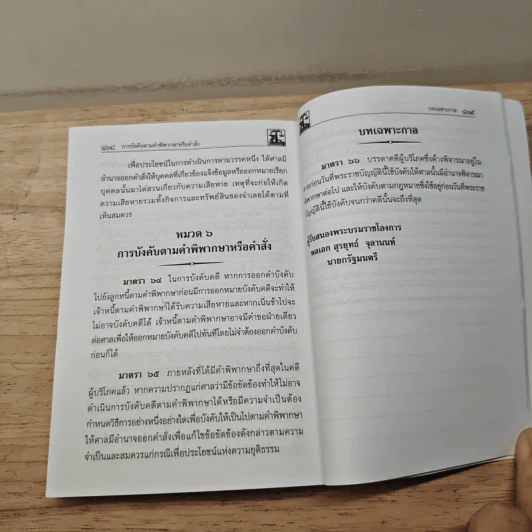 ๘๑๔ การบังคับตามคำพิพากษาหรือคำสั่ง
เพื่อประโยชน์ในการดำเนินการตามวรรคหนึ่ง ให้ศาลมี
อำนาจออกคำสั่งให้บุคคลที่เกี่ยวข้องแจ้งข้อมูลหรือออกหมายเรียก
บุคคลนั้นมาไต่สวนเกี่ยวกับความเสียหาย เหตุที่จะก่อให้เกิด
ความเสียหายรวมทั้งกิจการและทรัพย์สินของจำเลยได้ตามที่
เห็นสมควร
หมวด ๖
การบังคับตามคำพิพากษาหรือคำสั่ง
มาตรา ๖๔ ในการบังคับคดี หากการออกคำบังคับ
ไปยังลูกหนี้ตามคำพิพากษาก่อนมีการออกหมายบังคับคดีจะทำให้
เจ้าหนี้ตามคำพิพากษาได้รับความเสียหายและหากเนิ่นช้าไปจะ
ไม่อาจบังคับคดีได้ เจ้าหนี้ตามคำพิพากษาอาจมีคำขอฝ่ายเดียว
ต่อศาลเพื่อให้ออกหมายบังคับคดีไปทันทีโดยไม่จำต้องออกคำบังคับ
ก่อนก็ได้
มาตรา ๖๕ ภายหลังที่ได้มีคำพิพากษาถึงที่สุดในคดี
ผู้บริโภคแล้ว หากความปรากฏแก่ศาลว่ามีข้อขัดข้องทำให้ไม่อาจ
ดำเนินการบังคับคดีตามคำพิพากษาได้หรือมีความจำเป็นต้อง
กำหนดวิธีการอย่างหนึ่งอย่างใดเพื่อบังคับให้เป็นไปตามคำพิพากษา
ให้ศาลมีอำนาจออกคำสั่งเพื่อแก้ไขข้อขัดข้องดังกล่าวตามความ
จำเป็นและสมควรแก่กรณีเพื่อประโยชน์แห่งความยุติธรรม
บทเฉพาะกาล ๘๑๕
บทเฉพาะกาล
มาตรา ๖๖ บรรดาคดีผู้บริโภคซึ่งค้างพิจารณาอยู่ใน
ศาลก่อนวันที่พระราชบัญญัตินี้ใช้บังคับให้ศาลนั้นมีอำนาจพิจารณา
พิพากษาต่อไป และให้บังคับตามกฎหมายซึ่งใช้อยู่ก่อนวันที่พระราช
บัญญัตินี้ใช้บังคับจนกว่าคดีนั้นจะถึงที่สุด
ผู้รับสนองพระบรมราชโองการ
พลเอก สุรยุทธ์ จุลานนท์
นายกรัฐมนตรี